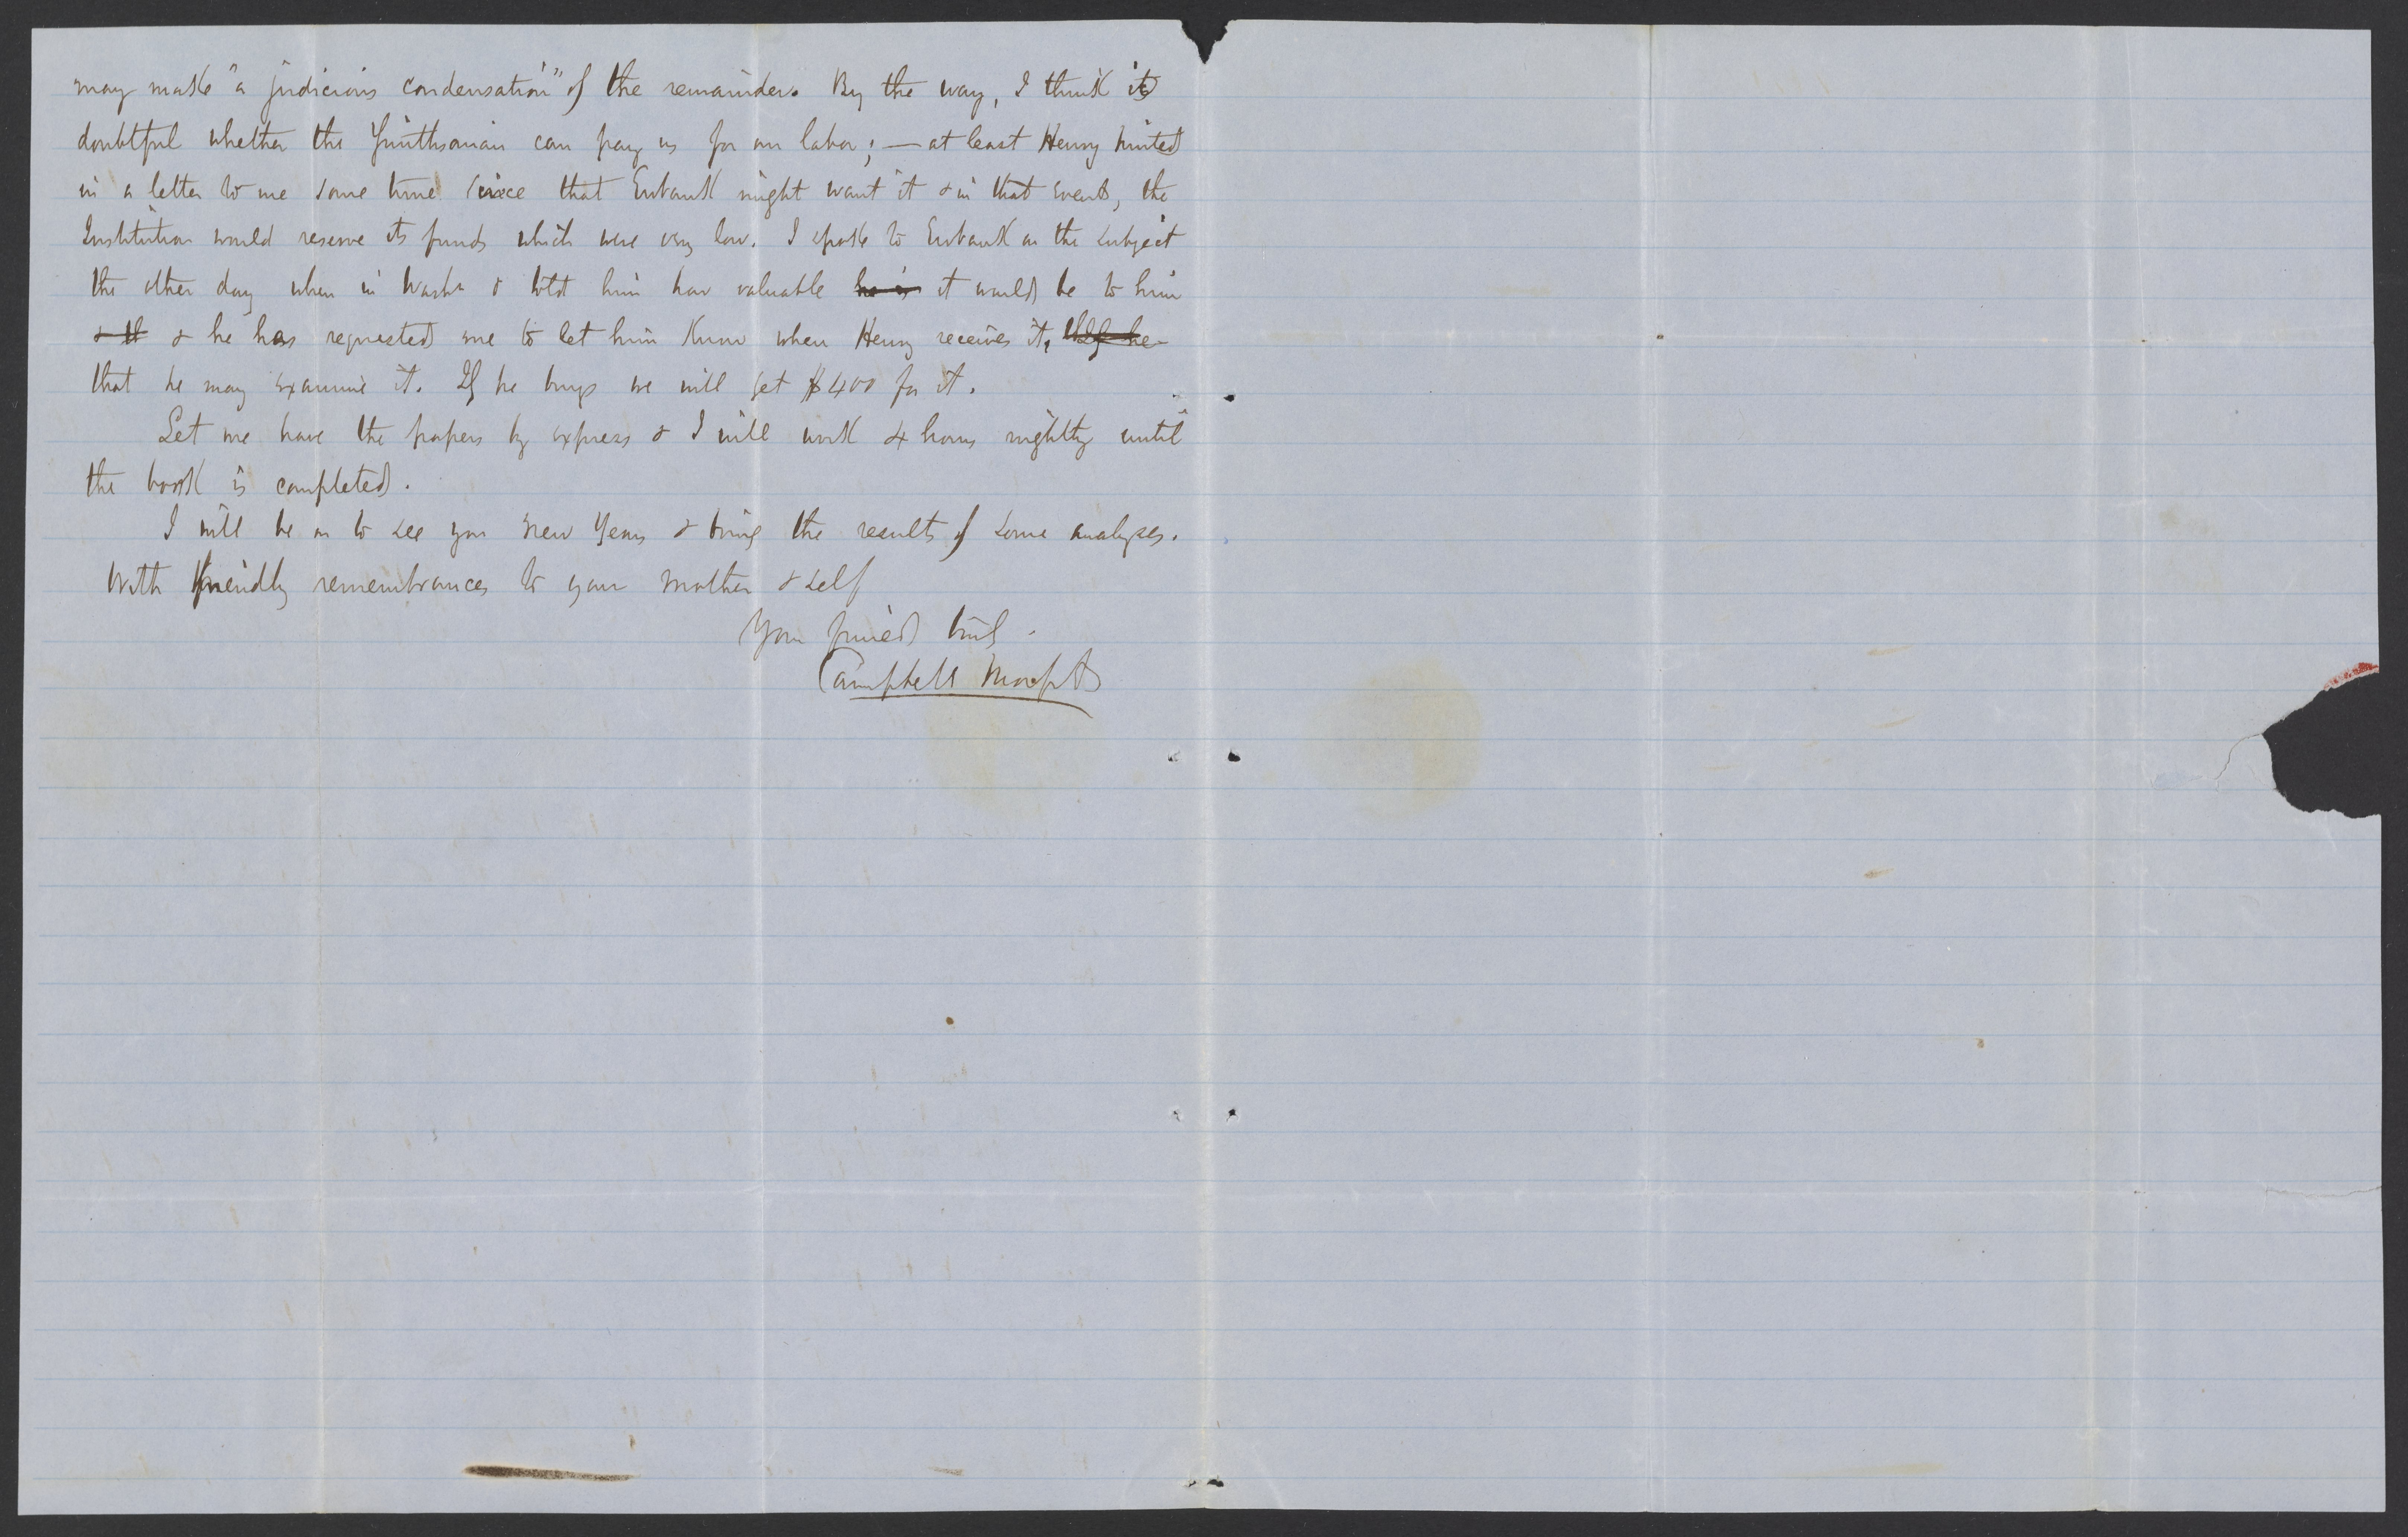 may make "a judicious condensation" of the remainder. By the way, I think it
doubtful whether the Smithsonian can pay us for our labor; — at least Henry hinted
in a letter to me some time since that Ewbank might want it & in that event, the
Institution would reserve its funds which were very low. I spoke to Ewbank on the subject
the other day when in Washn & told him how valuable he is it would be to him
& th & he has requested me to let him know when Henry receives it, If he
that he may examine it. If he buys we will get $400 for it.
Let me have the papers by express & I will work 4 hours nightly until
the book is completed.
I will be on to see you New Years & bring the results of some analyses.
With friendly remembrances to your mother & self
Your friend truly.
Campbell Morfit